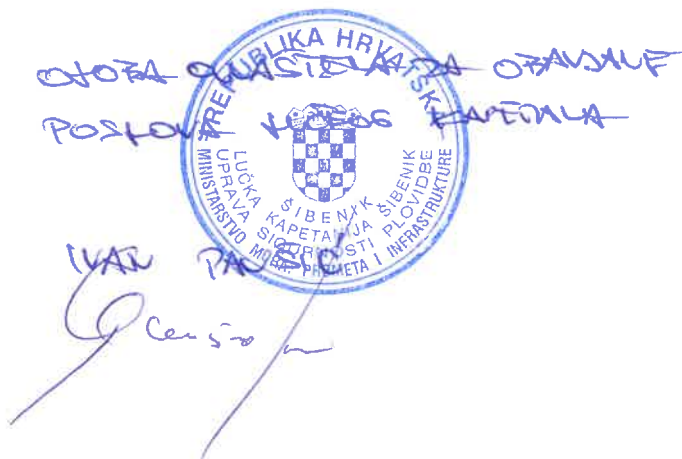 OSOBA OVLAŠTENA ZA OBAVLJANJE
POSLOVA LUČKOG KAPETANA
REPUBLIKA HRVATSKA
MINISTARSTVO MORA, PROMETA I INFRASTRUKTURE
UPRAVA SIGURNOSTI PLOVIDBE
LUČKA KAPETANIJA ŠIBENIK
ŠIBENIK
IVAN